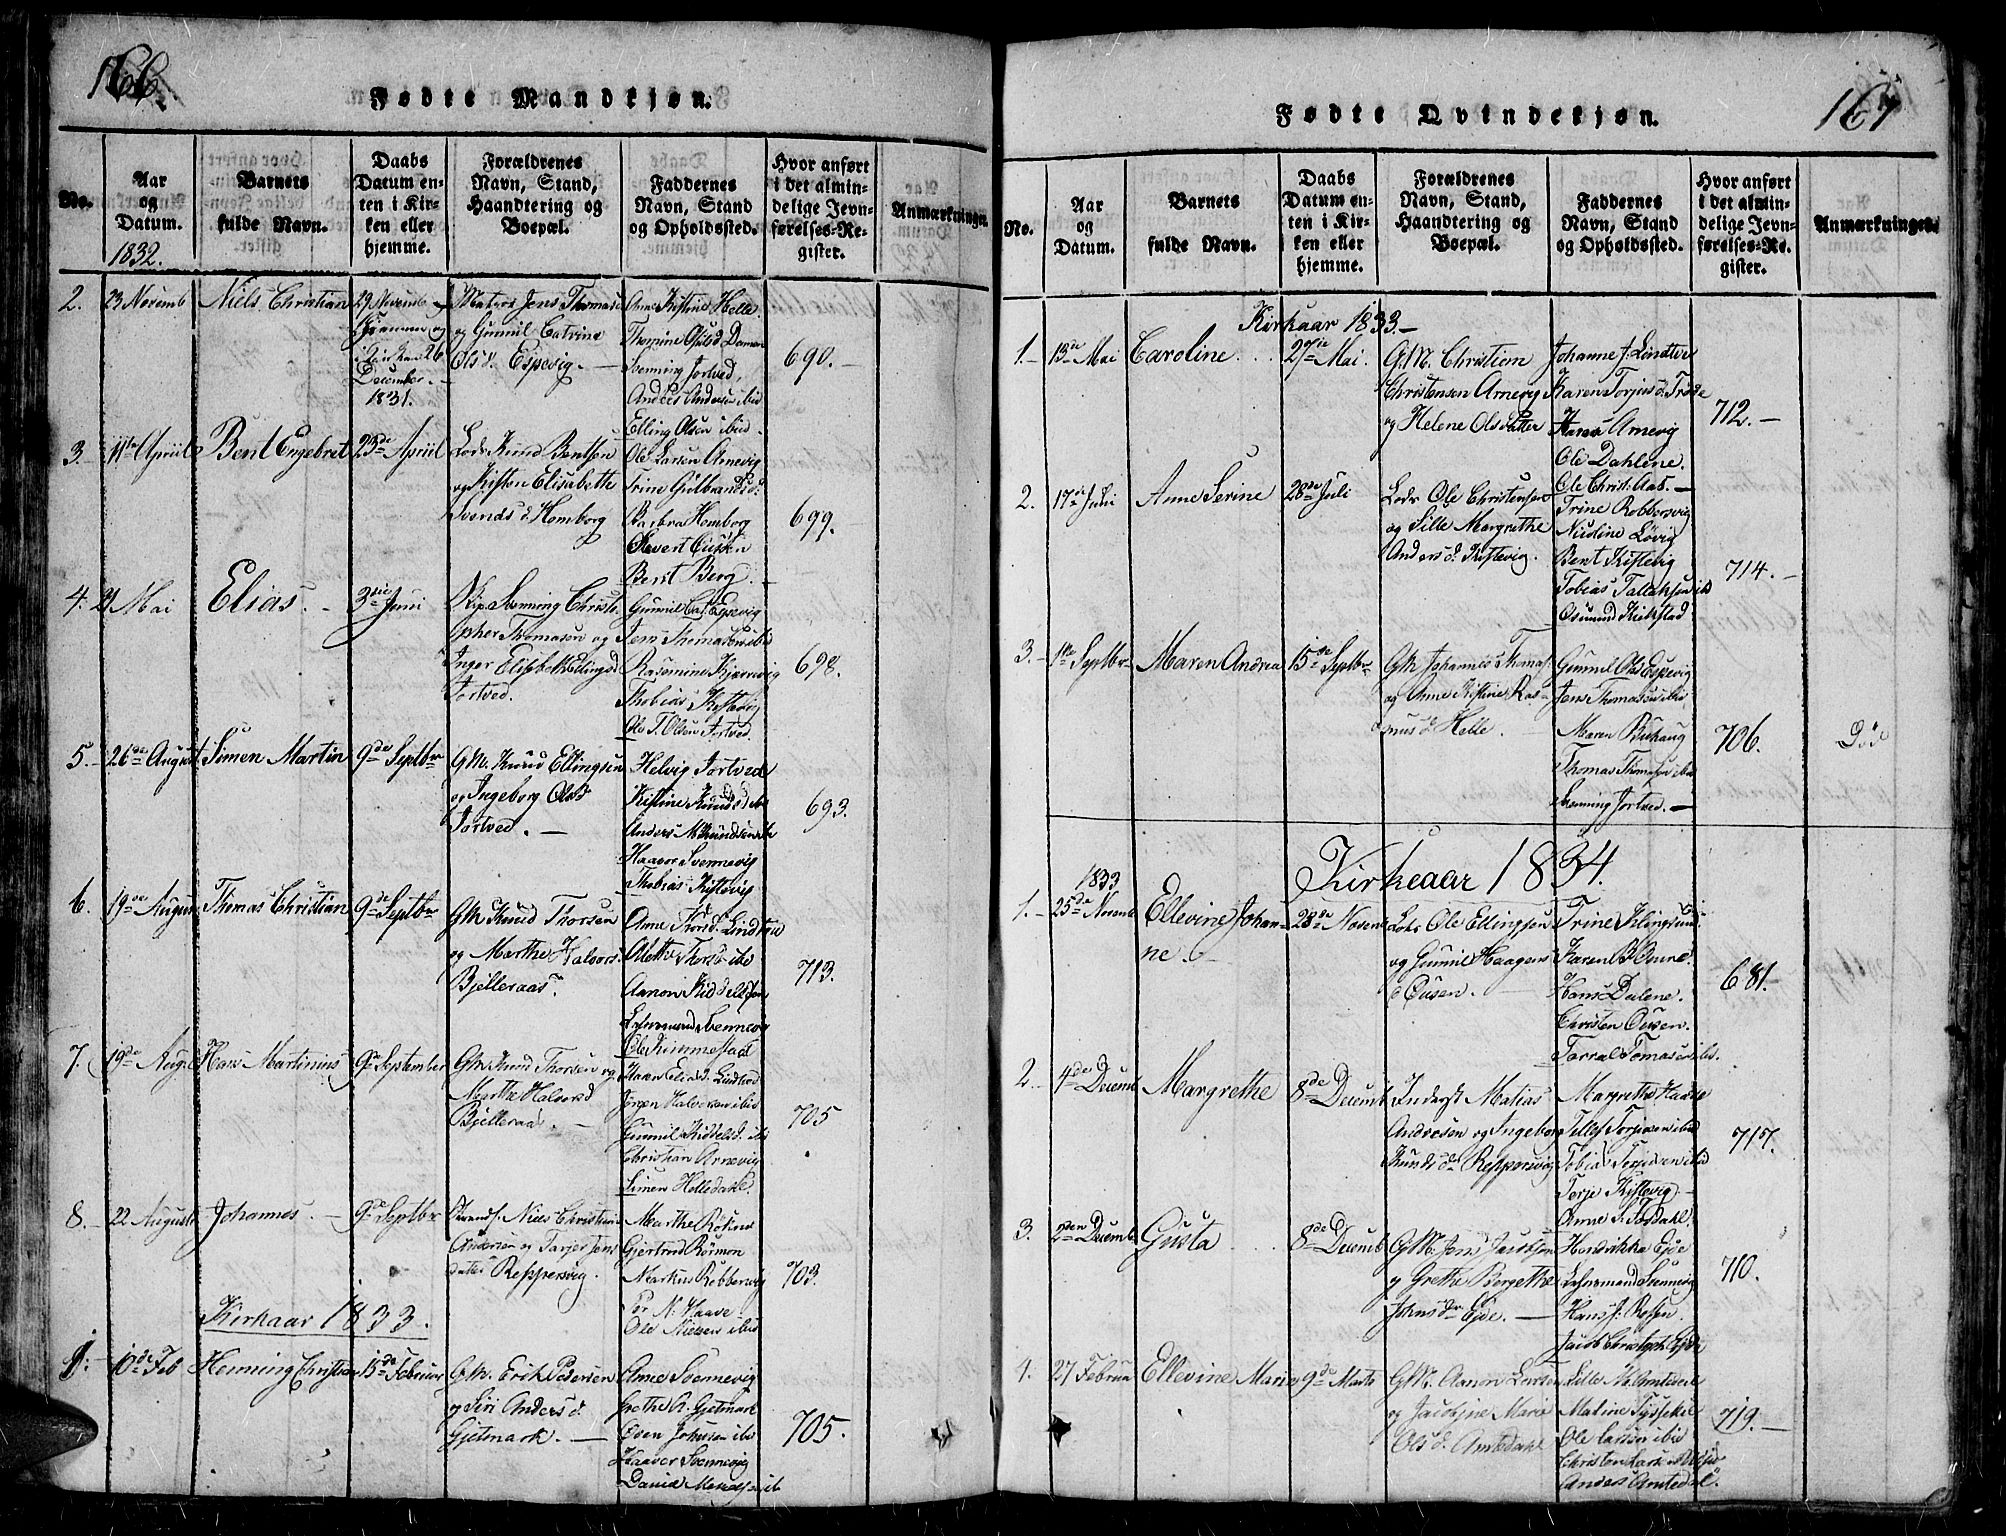 166.
Fødte Mandkjøn.
No.
Aar og Datum.
1832.
Barnets fulde Navn.
Daabs Datum enten i Kirken eller hjemme.
Forældrenes Navn, Stand, Haandtering og Boepæl.
Faddernes Navn, Stand og Opholdssted.
Hvor anført i det almindelige Jevnførelses-Register.
Anmærkninger.
2. 23 Novemb
Niels Christian
29 Novemb
hjemme og
i Kirken 26
December
1831.
Matros Jens Thomase
og Gunnil Catrine
Ols d. Espevig.
Anne Kistine Helle
Thomine Olsd
Svenning Jortved,
Anders Andersen ibid
Elling Olsen ibid
690.
3. 11te Apriil
Bent Engebret
23de Apriil
Lods Knud Bentsen
og Kisten Elisabeth
Svends d. Homborg
Ole Larsen Arnevig
Trine Gulbrands d:
Barbra Homborg
Sievert
Bent Berg.
699.
4. 21 Mai
Elias.
3die Juni
Skip. Svenning Christo
pher Thomasen og
Inger Elisabeth Ellingsd
Jortved.
Gunnil Espevig
Jens Thomasen ibid
Rasmine Kjærrevig
Thobias Kistevig
Ole T. Olsen Jortved.
698.
5. 26de August
Simen Martin
9de Septbr
GM. Knud Ellingsen
og Ingeborg Olsd
Jortved.
Helvig Jortved
Kistine Knudsd ibid
Anders M. Knudsen ib
Haavor Svennevig
Thobias Kistevig
693.
6. 19de August
Thomas Christian
9de Septbr
GM. Knud Thorsen
og Marthe Halvors
Bjelleraas.
Anne Thorsd. Lindtve
Alette Thorsd ibid
Aanon Kiddelsen
Svennevig
Ole Kimmestad
713.
7. 19de Aug.
Hans Martinius
9de September
GM. Knud Thorsen og
Marthe Halvorsd
Bjelleraa.
Karen Eliasd. Lindtve
Jørgen Halvorsen ibid
Gunnil Kiddelsd. ib
Christian Arnevig
Simen Helledahl.
705
8. 22 August
Johannes.
9de Septbr
Strands. Niels Christian
Andersen og Tarjer Jens
datter Reppersvig.
Marthe
Gjertrud
Markus Robbersvig
Per N. Haave
Ole Nielsen ibid
703.
Kirkaar 1833.
1. 10de Feb
Henning Christian
15de Februar
GM. Erik Pedersen
og Siri Anders d.
Gjetmark.
Anne Svennevig
Grethe A. Gjetmark
Even Johnsen ibid
Haavor Svennevig
David
705.
167
Fødte Qvindekjøn.
No.
Aar og Datum.
Barnets fulde Navn.
Daabs Datum enten i Kirken eller hjemme.
Forældrenes Navn, Stand, Haandtering og Boepæl.
Faddernes Navn, Stand og Opholdssted.
Hvor anført i det almindelige Jevnførelses-Register.
Anmærkninger.
Kirkaar 1833.
1. 13de Mai
Caroline
27de Mai.
GM. Christian
Christensen Arnevig
og Helene Olsdatter
Johanne J. Lindtve
Karen Torjus d.
Hans Arnevig
Ole Dahlene.
Ole Christ. Aab.
712.
2. 17de Juli
Anne Serine
28de Juli
Lods Ole Christensen
og Sille Margrethe
Anders d. Kistevig.
Trine Robbersvig
Nicoline Løvig
Bent Kistevig
Tobias Tallaksen ibid
Osmund Kirkstad
714.
3. 1te Septbr
Maren Andrea
15de Septbr
GM. Johannes Thomas.
og Anne Kistine Ras-
mus d. Helle.
Gunnil Olsd Espevig
Jens Thomasen ibid
Maren Buhaug
Thomas Thomasen ibid
Svenning Jortved.
706.
Død
Kirkeaar 1834.
1833
1. 25de Novemb
Ellevine Johan-
ne.
28de Novemb
Lods Ole Ellingsen
og Gunnil Haagens
d Ousen.
Trine Klingsund
Karen B. Onne.
Hans Dalene.
Christen Ousen.
Tarral Tomasen ibd.
681.
2. 4de Decemb
Margrethe
8de Decemb
Inderst Matias
Andresen og Ingebor
Knuds dr Reppersvig
Margrethe Haave
Tellef Torjusen ibid
Tobias Terjesen ibid
Terje Kistevig
Anne S. Fosdahl.
717.
3. 2den Decemb
Gusta
8de Decemb
GM. Jens Jacobsen
og Grethe Bergethe
Johns dr Eide.
Hendrikke Eide
Svennevig
Hans J. Rossen
Jacob Christoph Eide
710.
4. 27 Februa
Ellevine Marie
9de Marts
GM. Aanon Larsen
og Jacobine Marie
Ols d. Amtedahl
Sille M. Amtedal
Maline
Ole Larsen ibid
Christen
Anders Amtedal.
719.